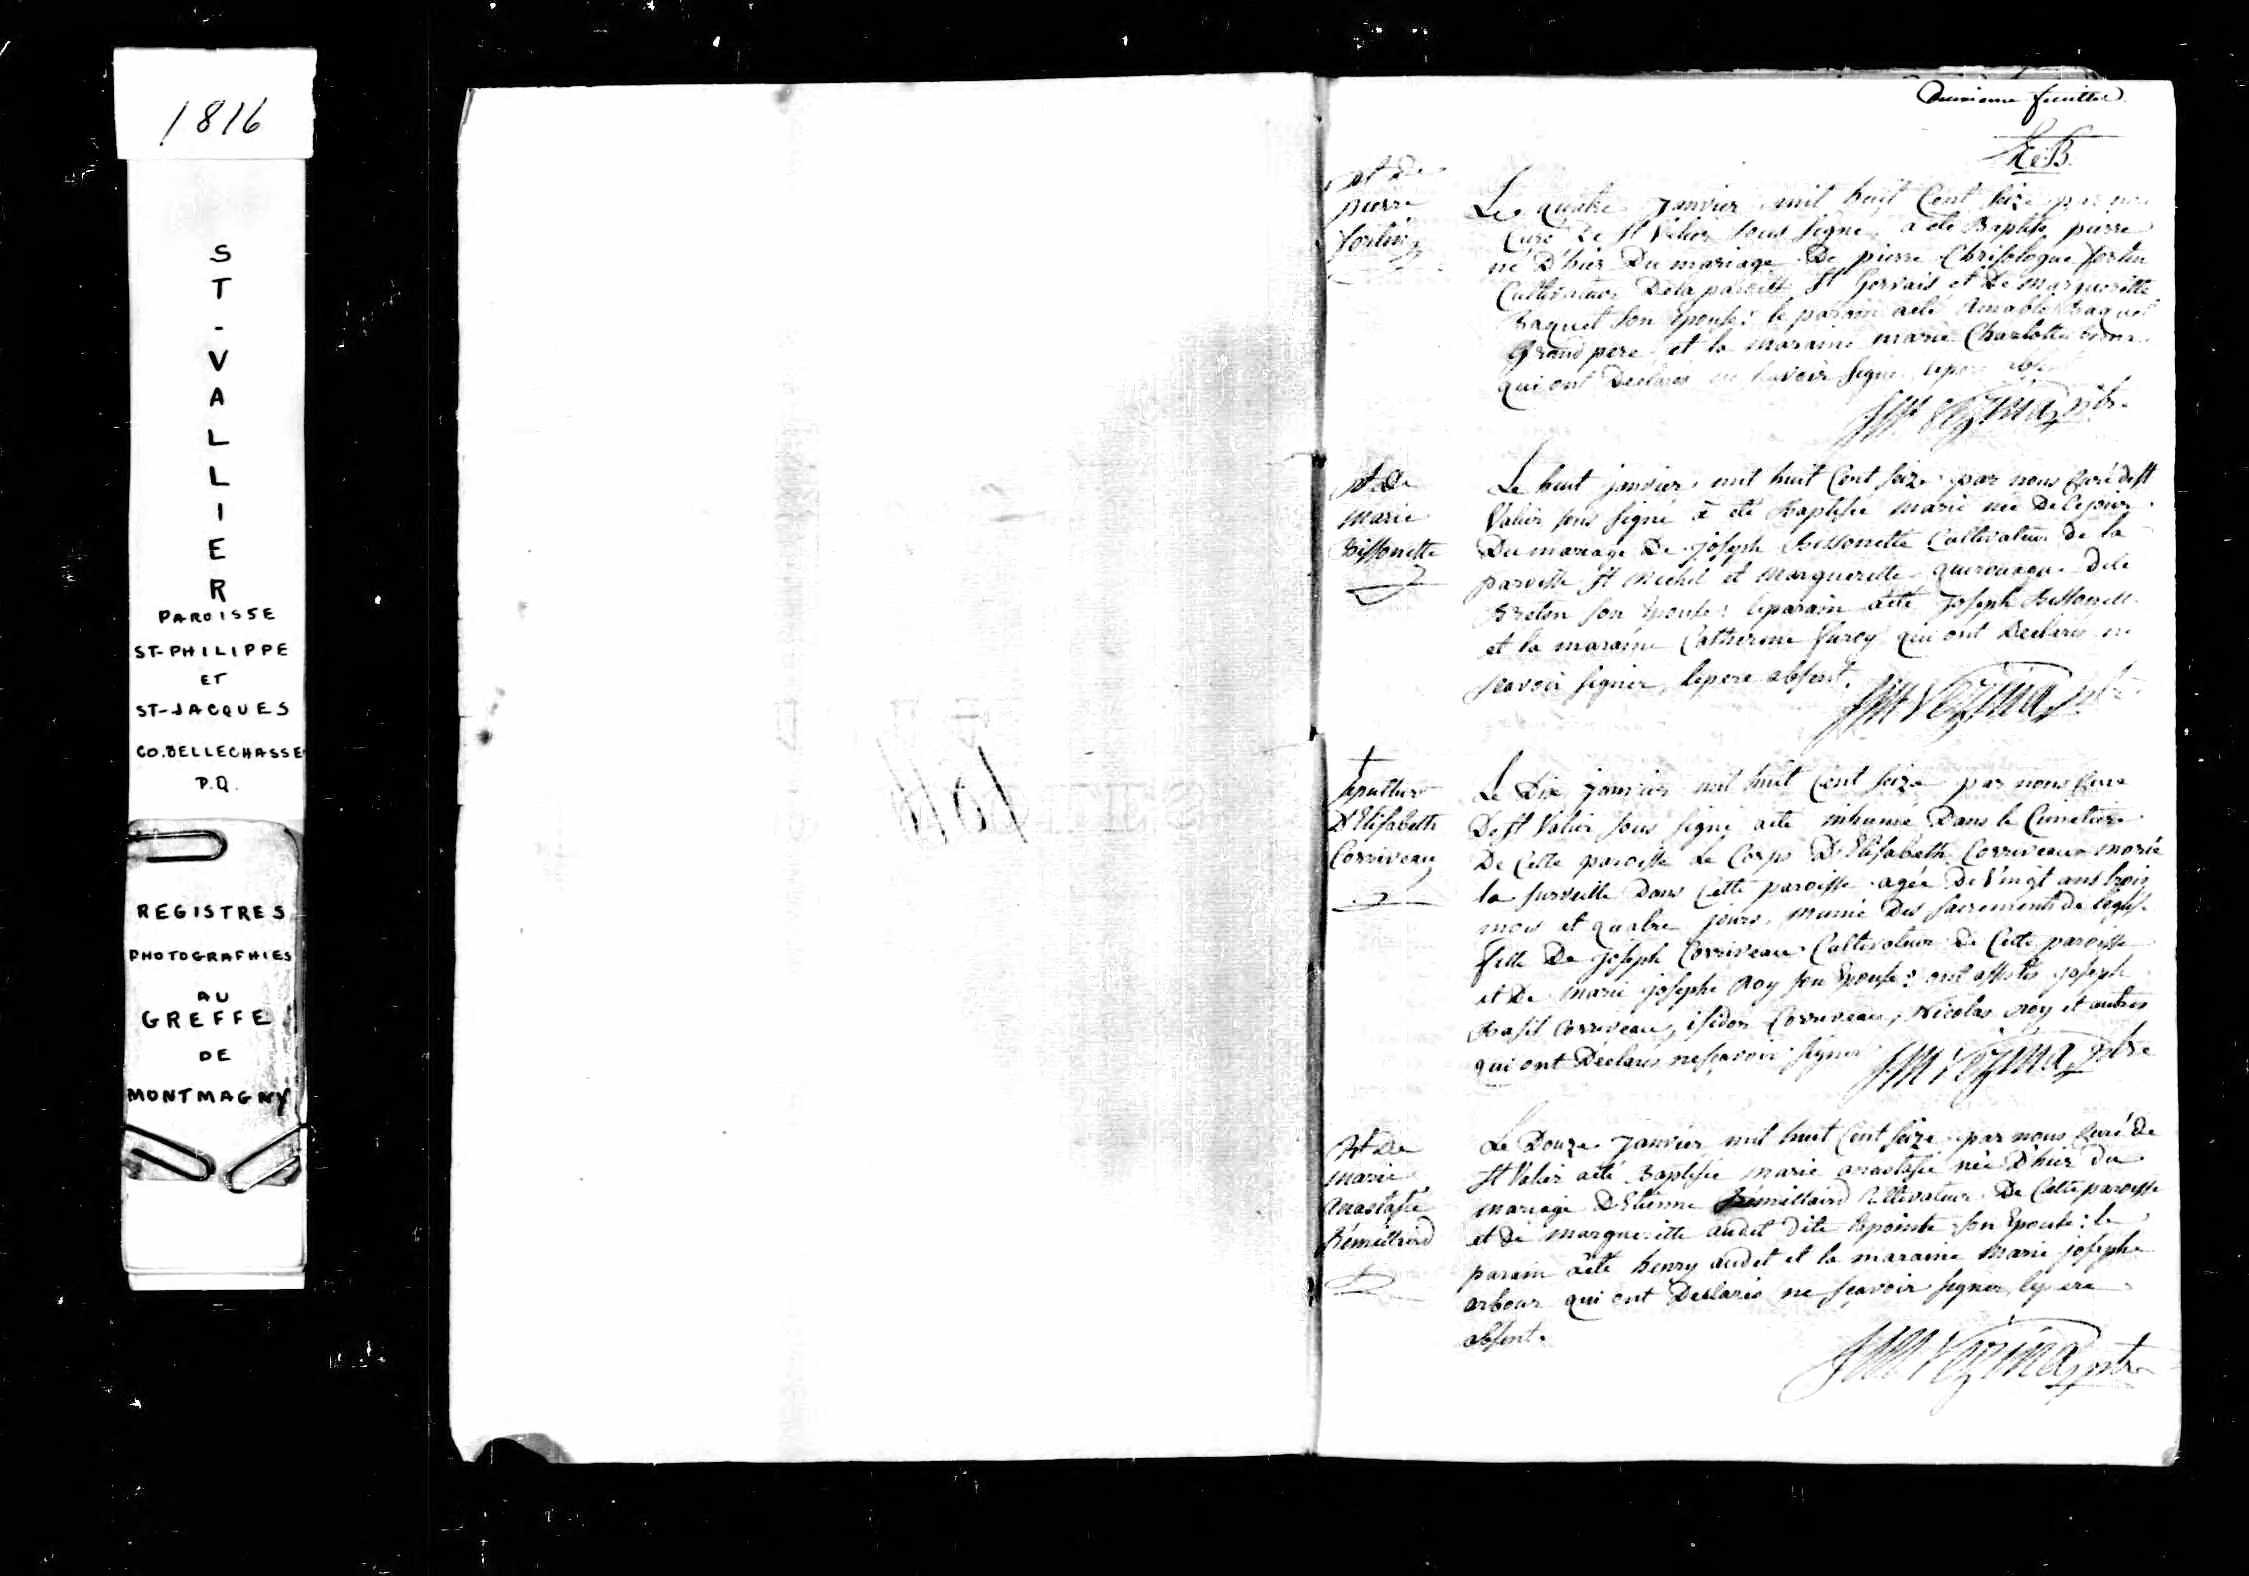 1816
ST-VALLIER
PAROISSE
ST-PHILIPPE
ET
ST-JACQUES
CO. BELLECHASSE
P.Q.
REGISTRES
PHOTOGRAPHIES
AU
GREFFE
DE
MONTMAGNY
Deuxieme feuillet
pierre
fortin
Le quatre janvier mil huit Cent seize par
Curé De St Valier sous signé, a été Baptisé pierre
né D'hier Du mariage De pierre Chrisologue fortin
Cultivateur Dela paroisse St Gervais et De margueritte
Baquet son Epouse: le parain aété Amable Baquet
Grand pere et la maraine marie Charlotte
qui ont Declarés ne sçavoir signer
Vezina ptre
Bt De
marie
Bissonette
Le huit janvier mil huit Cent seize par nous Curé de St
Valier sous signé a été Baptisée marie née De Ce jour
Du mariage De joseph Bissonette Cultivateur de la
paroisse St Michel et Marguerette dite
Breton son Epouse: le parain aété joseph Bissonette
et la maraine Catherine furoy qui ont Declarés ne
sçavoir signer, le pere absent.
Vezina ptre
sepulture
D'Elisabeth
Corriveau
Le Dix janvier mil huit Cent seize par nous Curé
De St Valier sous signé aété inhumé Dans le Cimetiere
De Cette paroisse le Corps D'Elisabeth Corriveau morte
la surveille Dans Cette paroisse agée De Vingt ans trois
mois et quatre jours, munie Des sacrements de l'eglise
fille De joseph Corriveau Cultivateur De Cette paroisse
et De marie josephe Roy son Epouse: ont assistés joseph
Basil Corriveau, isidor Corriveau, Nicolas Roy et autres
qui ont Declarés ne sçavoir signer
Vezina ptre
Bt De
marie
Anastasie
Rémillard
Le Douze janvier mil huit Cent seize par nous Curé De
St Valier aété Baptisée marie anastasie née D'hier du
mariage D'Etienne Rémillard Cultivateur De Cette paroisse
et De marguerite audet dite lapointe son Epouse: le
parain aété henry audet et la maraine marie josephe
arbour qui ont Declarés ne sçavoir signer, le pere
absent.
Vezina ptre